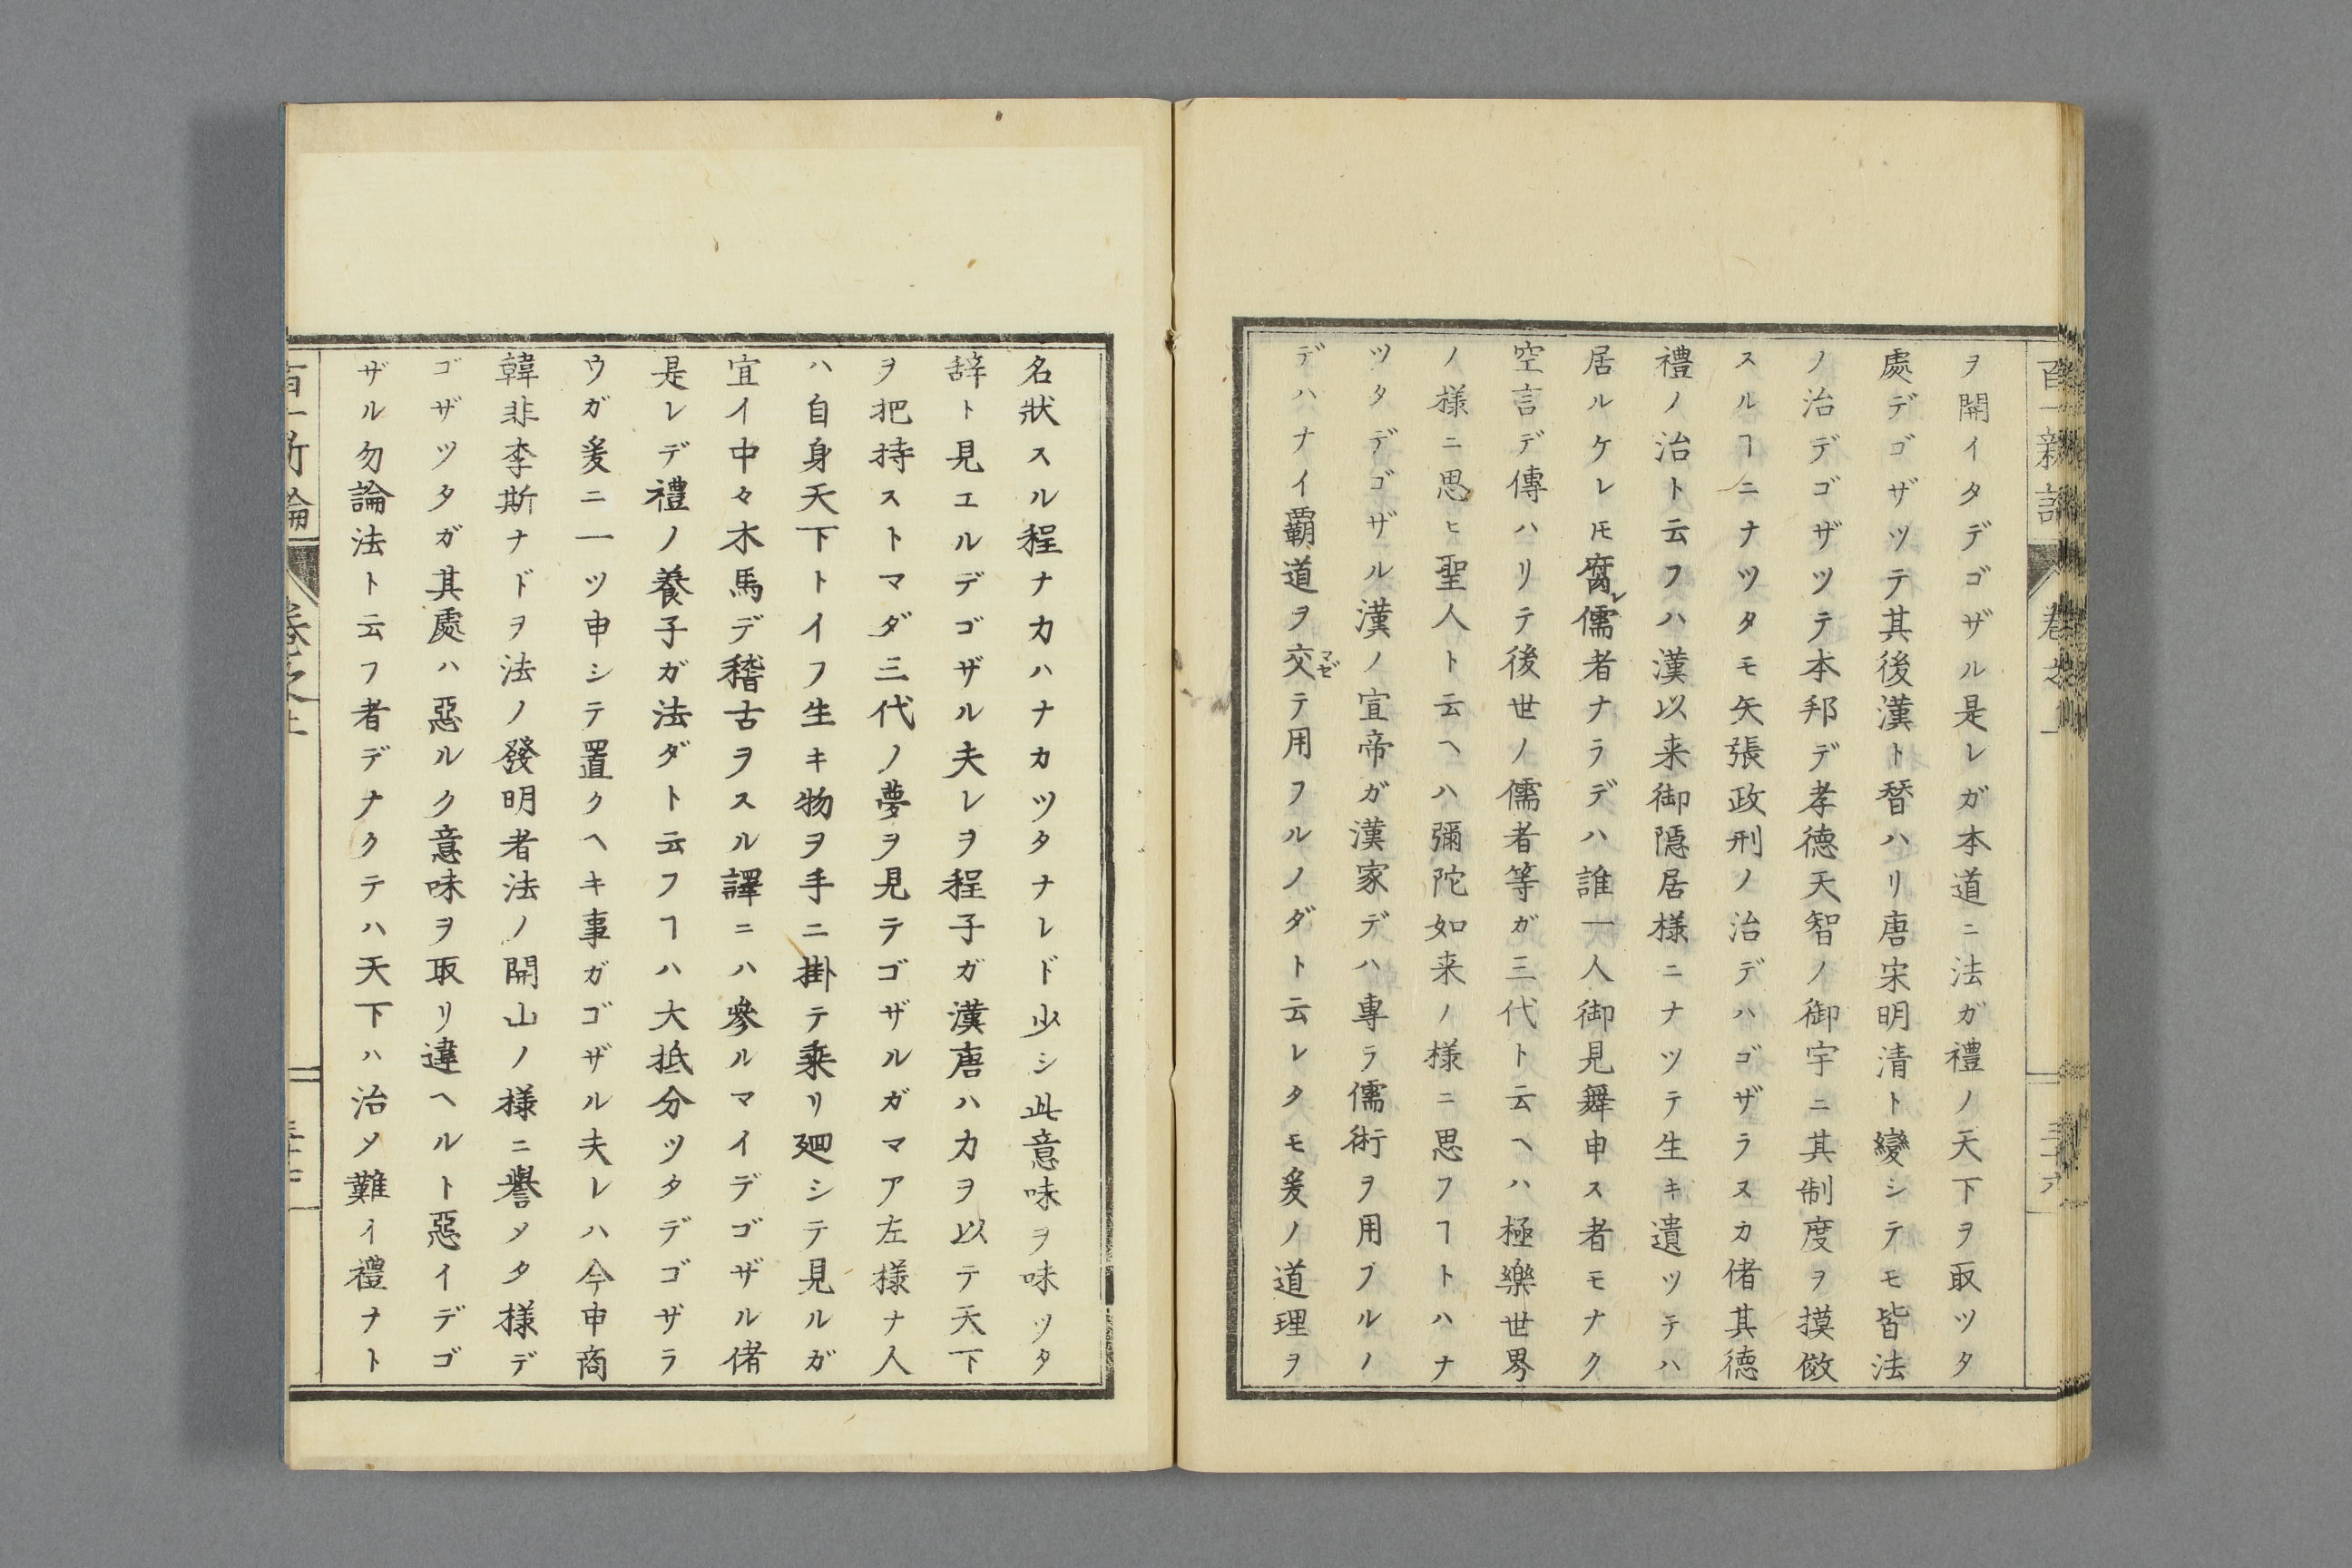 百一新論 卷之上 三十六
ヲ開イタデゴザル是レガ本道ニ法ガ禮ノ天下ヲ取ツタ
處デゴザツテ其後漢ト替ハリ唐宋明清ト變シテモ皆法
ノ治デゴザツテ本邦デ孝德天智ノ御宇ニ其制度ヲ摸倣
スルヿニナツタモ矢張政刑ノ治デハゴザラヌカ偖其德
禮ノ治ト云フハ漢以来御隱居樣ニナツテ生キ遺ツテハ
居ルケレ𪜈腐レ儒者ナラデハ誰一人御見舞申ス者モナク
空言デ傳ハリテ後世ノ儒者等ガ三代ト云ヘハ極樂世界
ノ樣ニ思ヒ聖人ト云ヘハ彌陀如来ノ樣ニ思フヿトハナ
ツタデゴザル漢ノ宣帝ガ漢家デハ專ラ儒術ヲ用ブルノ
デハナイ覇道ヲ交マゼテ用フルノダト云レタモ爰ノ道理ヲ
名狀スル程ナカハナカツタナレド少シ此意味ヲ味ツタ
辞ト見エルデゴザル夫レヲ程子ガ漢唐ハ力ヲ以テ天下
ヲ把持ストマダ三代ノ夢ヲ見テゴザルガマア左樣ナ人
ハ自身天下トイフ生キ物ヲ手ニ掛テ乘リ廻シテ見ルガ
宜イ中々木馬デ稽古ヲスル譯ニハ參ルマイデゴザル偖
是レデ禮ノ養子ガ法ダト云フヿハ大抵分ツタデゴザラ
ウガ爰ニ一ツ申シテ置クヘキ事ガゴザル夫レハ今申商
韓非李斯ナドヲ法ノ發明者法ノ開山ノ樣ニ譽メタ樣デ
ゴザツタガ其處ハ惡ルク意味ヲ取リ違ヘルト惡イデゴ
ザル勿論法ト云フ者デナクテハ天下ハ治メ難イ禮ナト
百一新論 卷之上